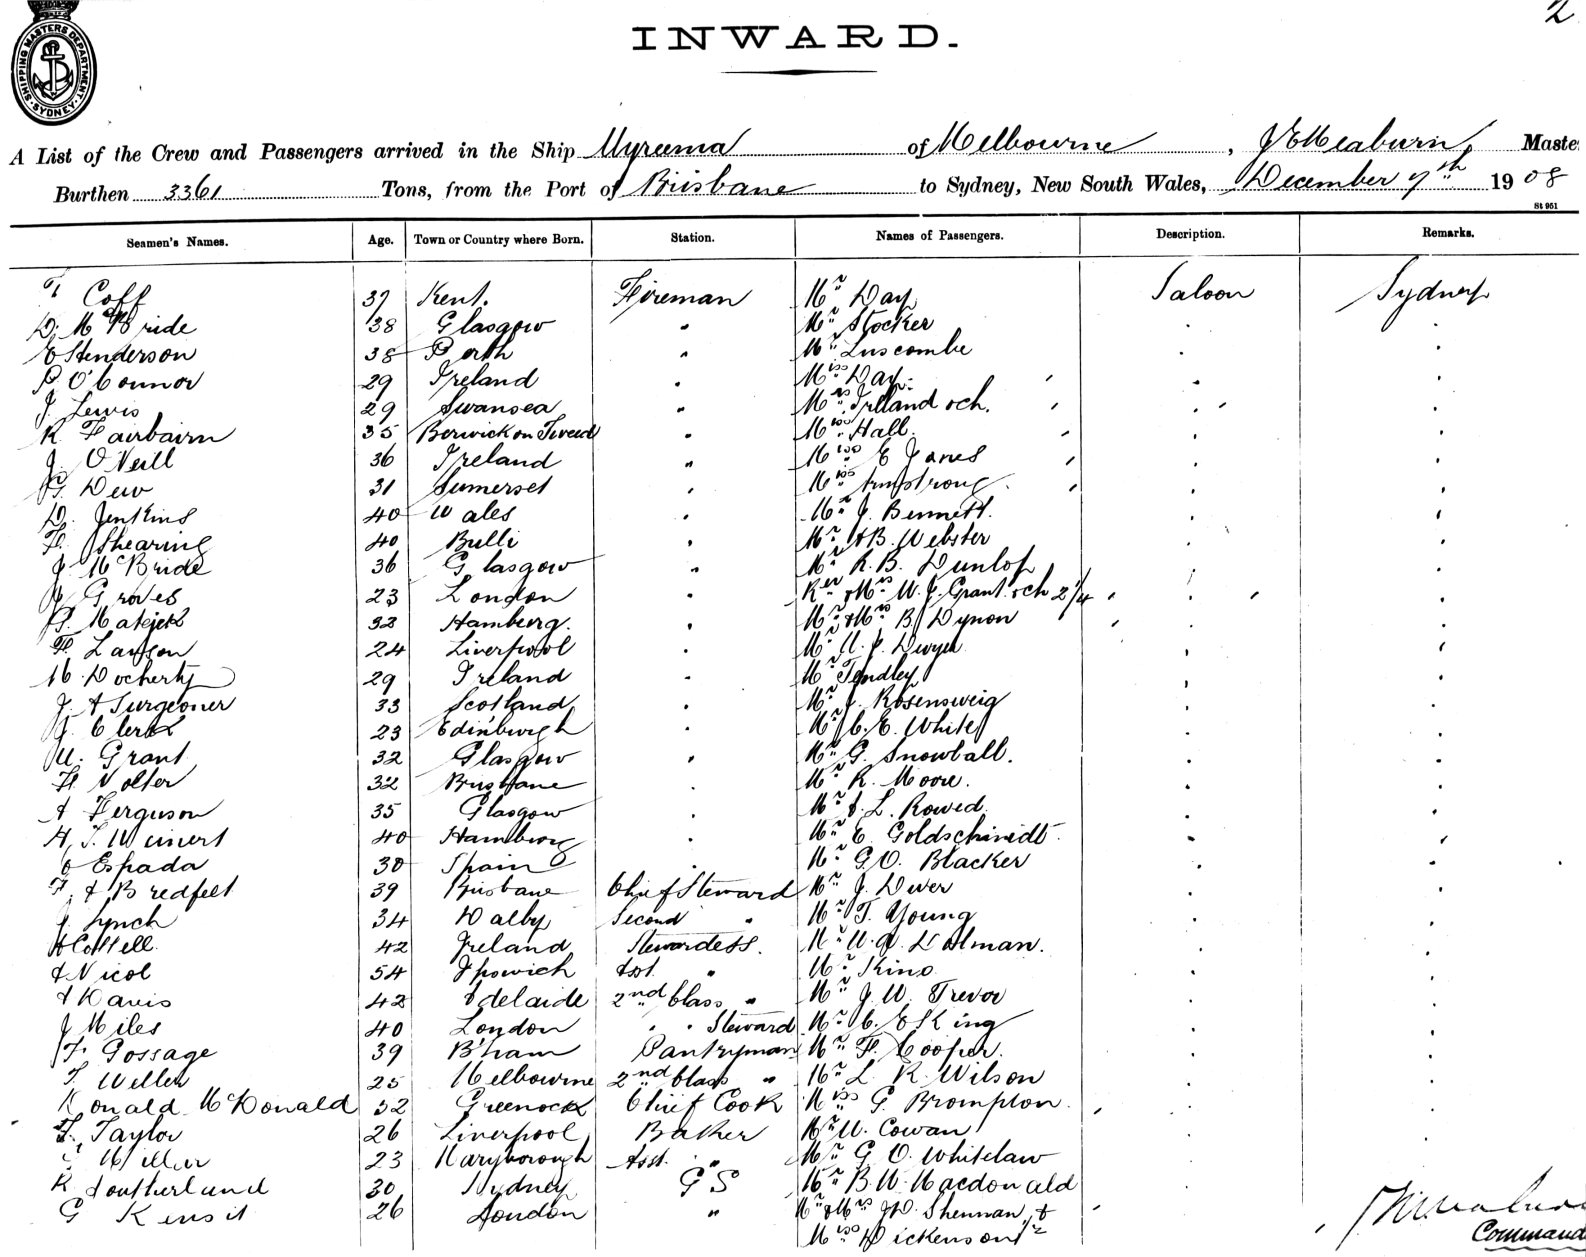 2
INWARD.
SHIPPING MASTERS DEPARTMENT. SYDNEY
A List of the Crew and Passengers arrived in the Ship Wyreema of Melbourne, J E Meaburn, Maste
Burthen 3361 Tons, from the Port of Brisbane to Sydney, New South Wales, December 7th 1908
St 951
Seamen's Names. Age. Town or Country where Born. Station. Names of Passengers. Description. Remarks.
Coff 37 Kent. Fireman Mr Day Saloon Sydney
D. McBride 38 Glasgow " Mr Stocker
E Henderson 38 Perth " Mr Luscombe
P. O'Connor 29 Ireland " Miss Day
J. Lewis 29 Swansea " Mrs Irlland & ch.
R Fairbairn 35 Berwick on Tweed " Miss Hall.
J. O'Neill 36 Ireland " Miss E Jones
Dew 31 Sumerset " Miss Armstrong
D. Jenkins 40 Wales " Mr J. Bennett.
H. Shearing 40 Bulli " Mr A B. Webster
J. McBride 36 Glasgow " Mr R. B. Dunlop
Graves 23 London " Rev & Mrs W. J. Grant & ch 2/4
32 Hamburg. " Mr & Mrs B. Dynon
24 Liverpool " Mr Dwyer
M. Docherty 29 Ireland " Mr Tindley
J. A Surgeoner 33 Scotland " Mr J. Rosensweig
J. Clerk 23 Edinburgh " Mr C. E. White
W. Grant 32 Glasgow " Mr G. Snowball.
H Nolter 32 Brisbane " Mr R. Moore.
A Ferguson 35 Glasgow " Mr L. Rowed.
H. T. Weinert 40 Hamburg " Mr E Goldschmidt.
Espada 30 Spain " Mr G. O. Blacker
F. A Bredfelt 39 Brisbane Chief Steward Mr J. Dwer
J Lynch 34 Dalby Second " Mr T. Young
A Cottell. 42 Ireland Stewardess. Mr Dolman.
A Nicol 54 Ipswich Asst. " Mr King
A Davis 42 Adelaide 2nd Class " Mr J. W. Trevor
J Miles 40 London " " Steward Mr C. E King
F. Gossage 39 B'ham Pantryman Mr F. Cooper.
T. Weller 25 Melbourne 2nd Class " Mr L R. Wilson
Ronald McDonald 32 Greenock Chief Cook Miss G. Brompton.
F. Taylor 26 Liverpool Baker Mr W. Cowan
Miller 23 Maryborough Asst. " Mr G O. Whitelaw
R Southerland 30 Sydney G S Mr B. W. Macdonald
G Kensit 26 London " Mr & Mrs J D. Shennan &
Miss Dickenson
Command